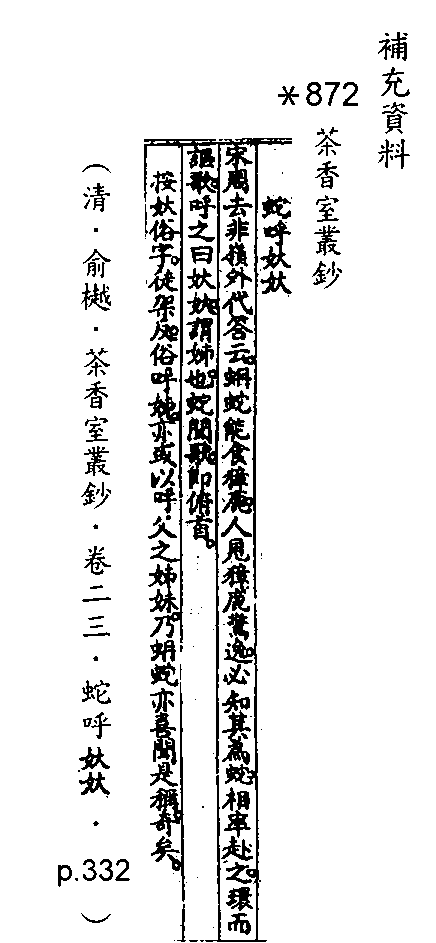 補充資料
＊872
茶香室叢鈔
蛇呼妖妖
宋周去非嶺外代答云。蚺蛇能食獐鹿。人見獐鹿驚逸。必知其為蛇。相率赴之。環而
謳歌。呼之曰妖妖。謂姊也。蛇聞歌。即俯首。
按妖俗字。徒架反。俗呼娘。亦或以呼父之姊妹。乃蚺蛇亦喜聞是稱。奇矣。
（清．俞樾．茶香室叢鈔．卷二三．蛇呼妖妖．
p.332）